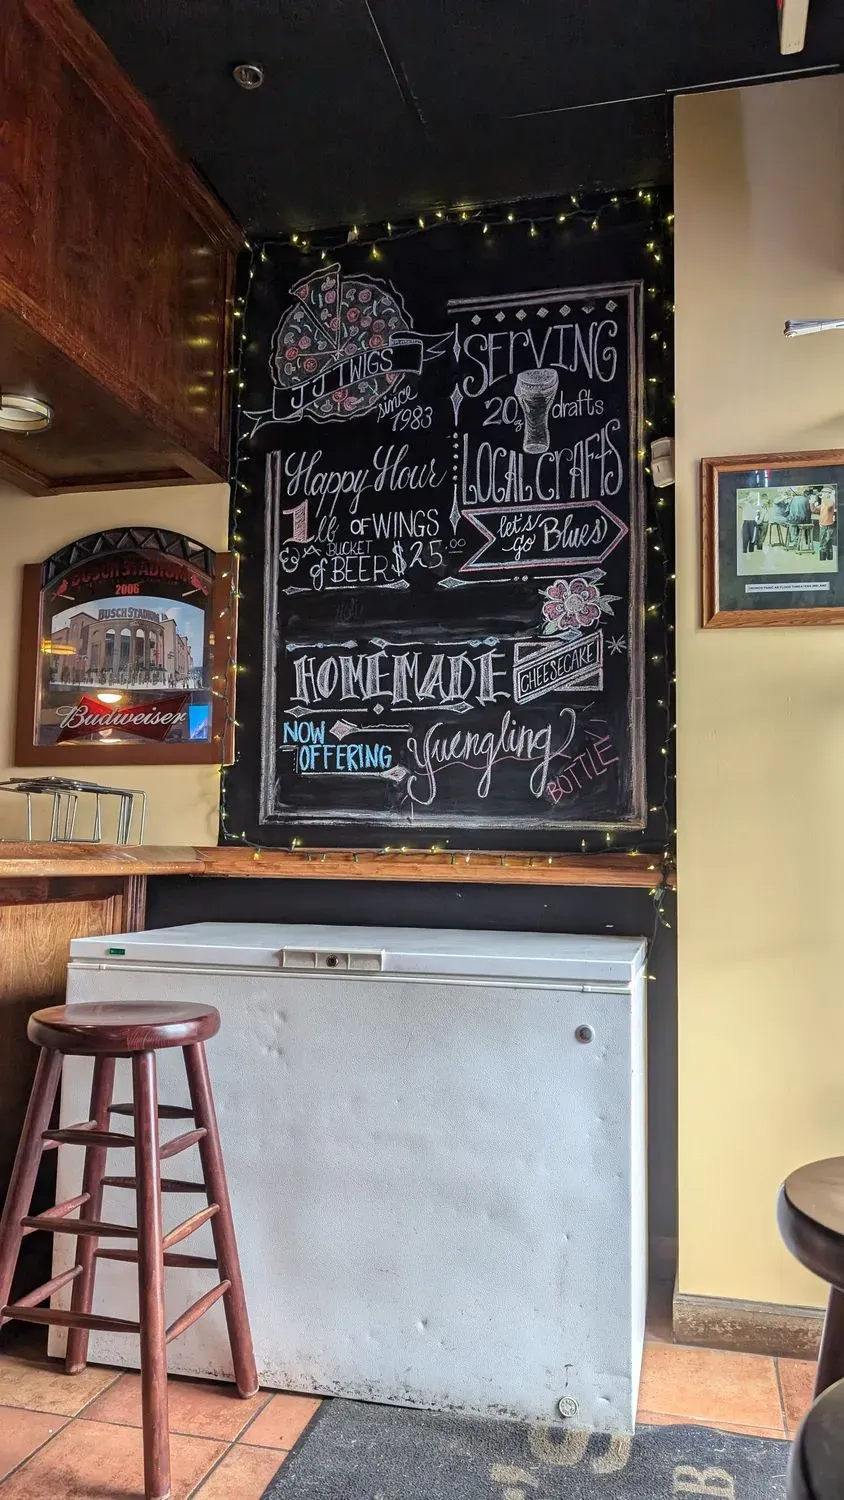 JJ TWIGS
since
1983
SERVING
20oz drafts
LOCAL CRAFTS
let's
go Blues
Happy Hour
1 lb OF WINGS
& A BUCKET
of BEER $25.00
HOMEMADE
CHEESECAKE
NOW
OFFERING
Yuengling
BOTTLE
BUSCH STADIUM
2006
BUSCH STADIUM
Budweiser
B